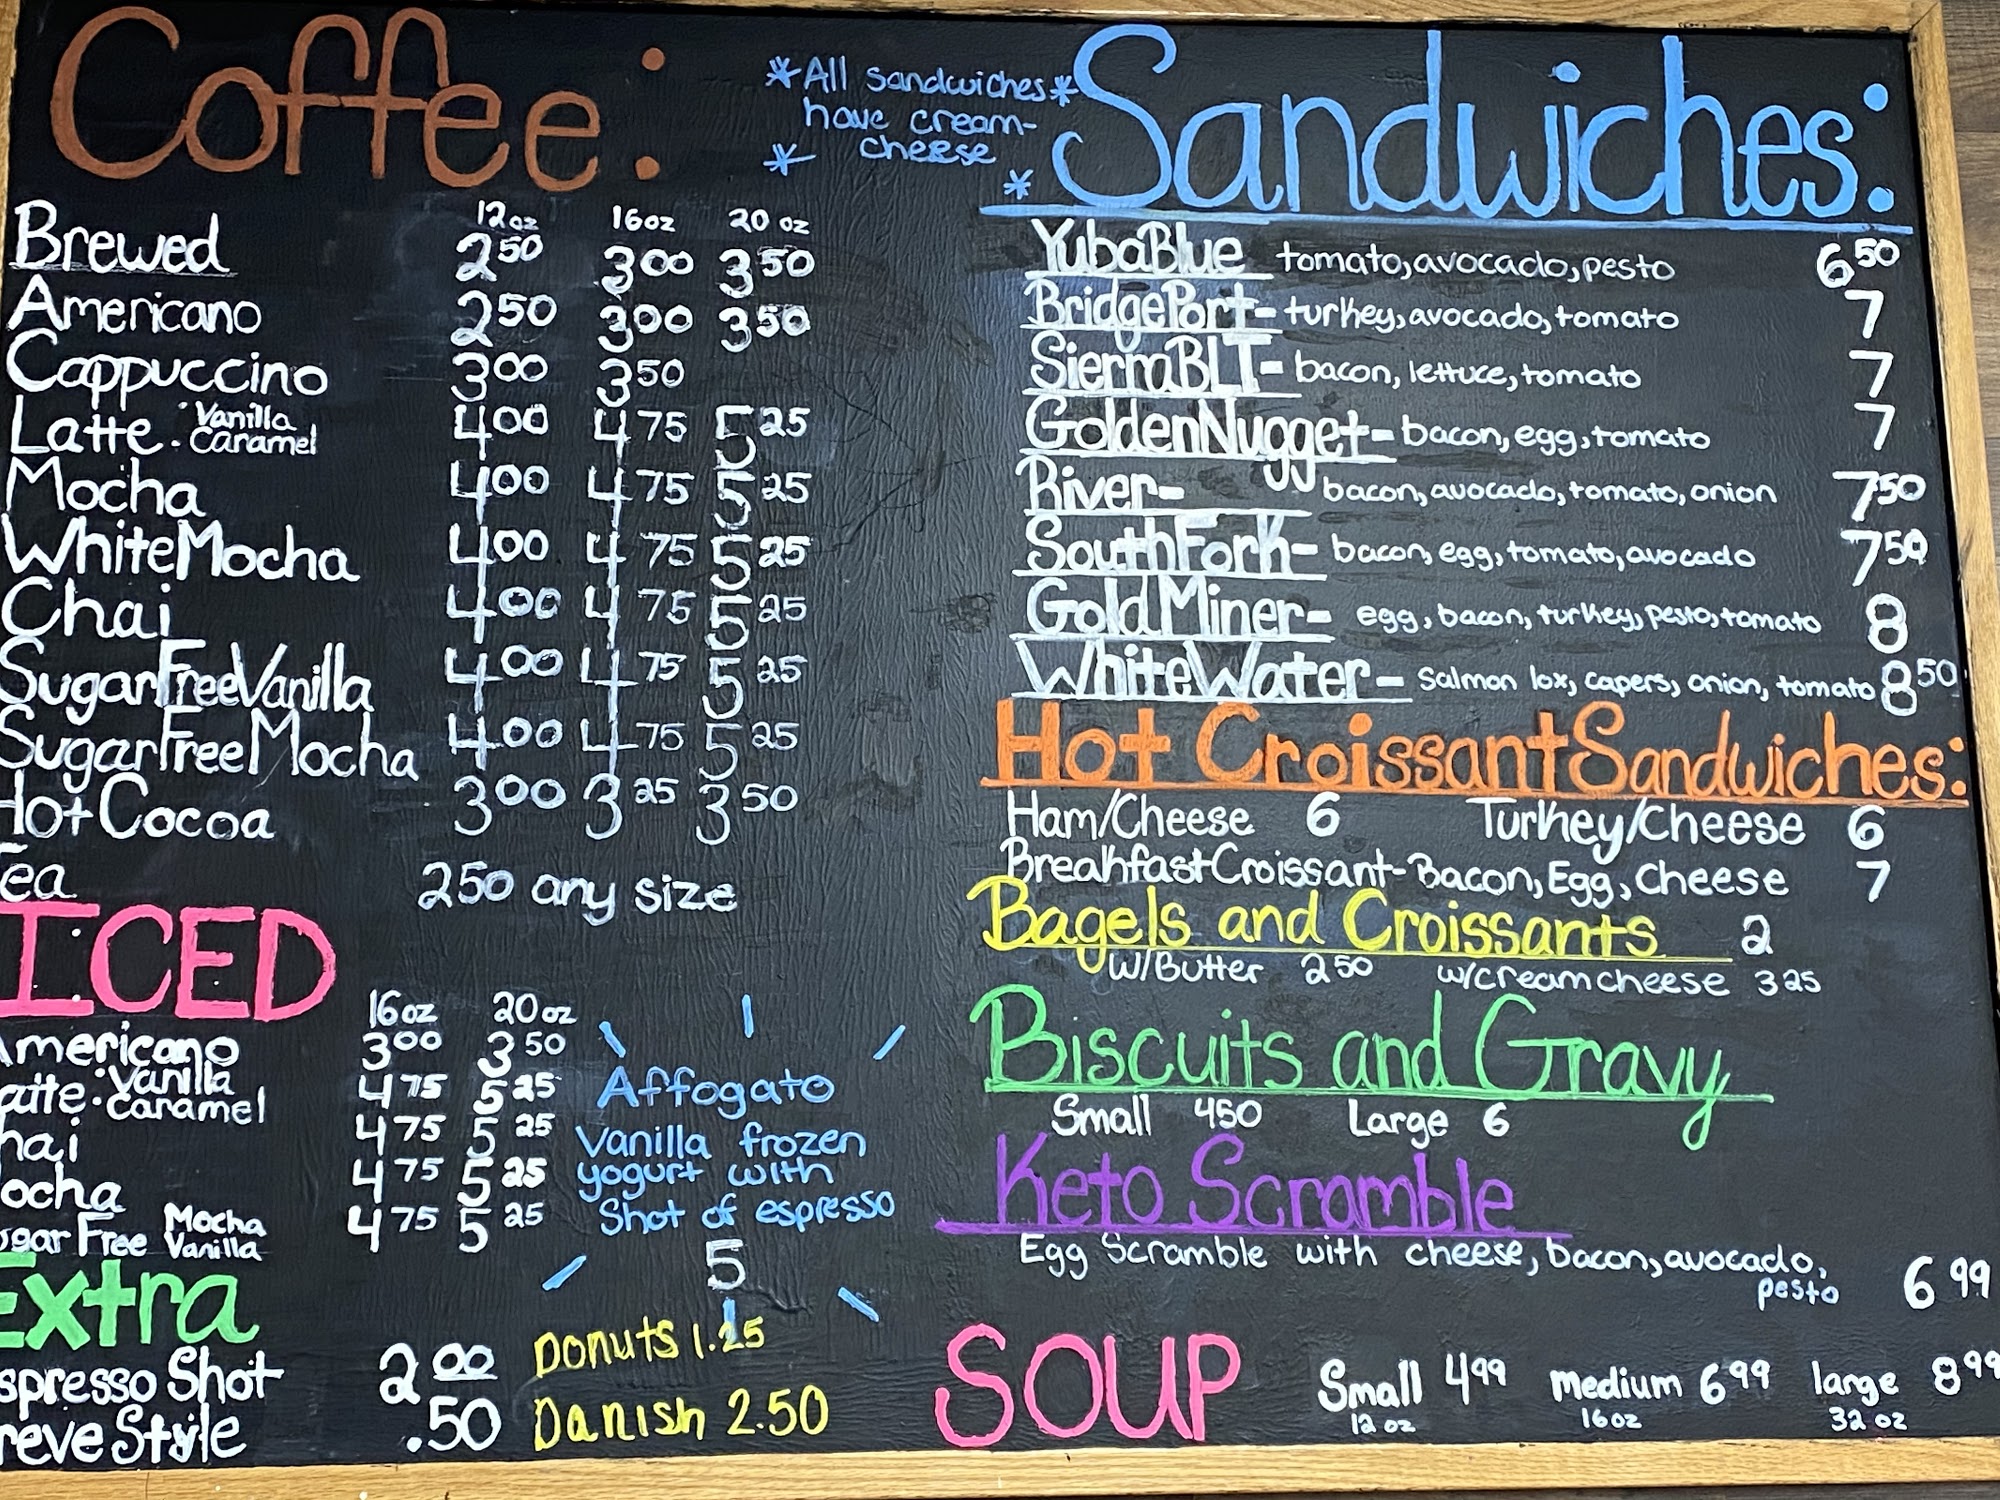 Coffee:
*All sandwiches*
have cream-
* cheese *
12oz 16oz 20 oz
Brewed 2 50 3 00 3 50
Americano 2 50 3 00 3 50
Cappuccino 3 00 3 50
Latte · Vanilla Caramel 4 00 4 75 5 25
Mocha 4 00 4 75 5 25
WhiteMocha 4 00 4 75 5 25
Chai 4 00 4 75 5 25
SugarFreeVanilla 4 00 4 75 5 25
SugarFreeMocha 4 00 4 75 5 25
Hot Cocoa 3 00 3 25 3 50
Tea 250 any size
ICED
16oz 20oz
Americano 3 00 3 50
atte · Vanilla Caramel 4 75 5 25
hai 4 75 5 25
ocha 4 75 5 25
ugar Free Mocha Vanilla 4 75 5 25
Affogato
Vanilla frozen
yogurt with
Shot of espresso
5
Extra
spresso Shot 2 00
reve Style .50
Donuts 1.25
Danish 2.50
Sandwiches:
YubaBlue tomato, avocado, pesto 6 50
BridgePort- turkey, avocado, tomato 7
SierraBLT- bacon, lettuce, tomato 7
GoldenNugget- bacon, egg, tomato 7
River- bacon, avocado, tomato, onion 7 50
SouthFork- bacon, egg, tomato, avocado 7 50
Gold Miner- egg, bacon, turkey, pesto, tomato 8
WhiteWater- Salmon lox, capers, onion, tomato 8 50
Hot Croissant Sandwiches:
Ham/Cheese 6 Turkey/Cheese 6
Breakfast Croissant- Bacon, Egg, Cheese 7
Bagels and Croissants 2
w/Butter 2 50 w/creamcheese 3 25
Biscuits and Gravy
Small 450 Large 6
Keto Scramble
Egg Scramble with cheese, bacon, avocado,
pesto 6 99
SOUP Small 4 99 medium 6 99 large 8 99
12 oz 16oz 32 oz